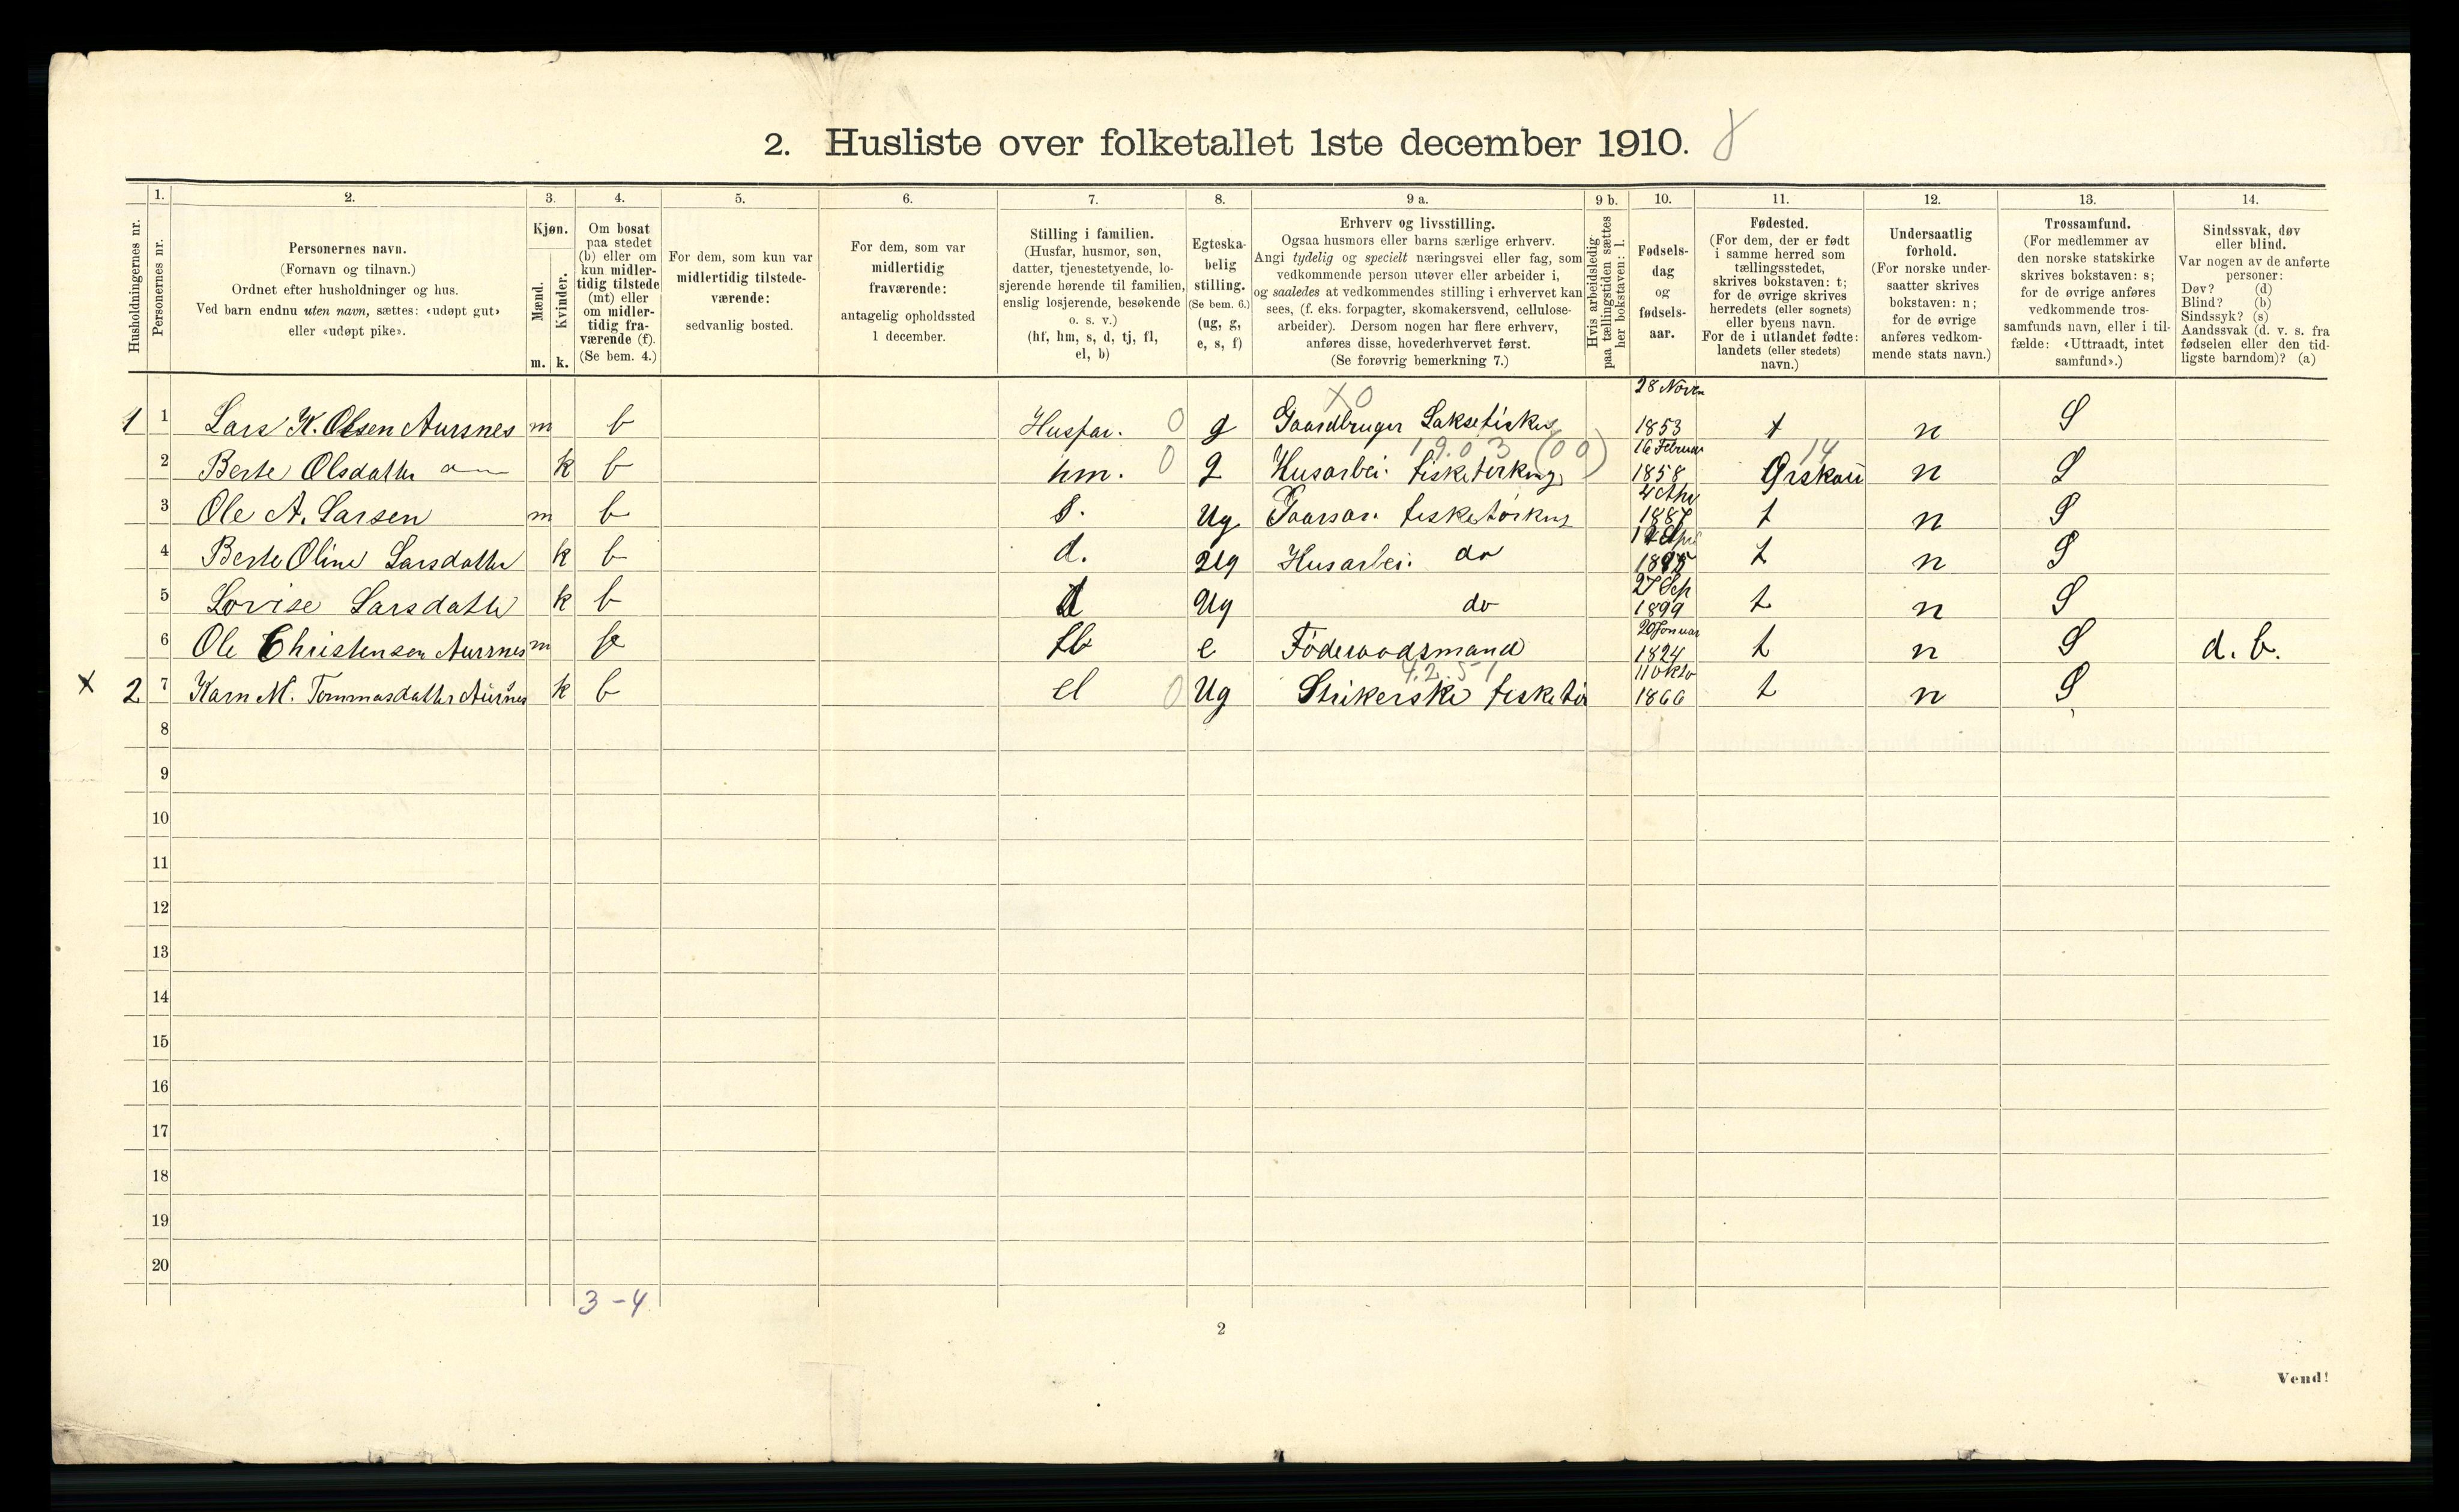 2. Husliste over folketallet 1ste december 1910.
Husholdningernes nr.
1.
Personernes nr.
2.
Personernes navn.
(Fornavn og tilnavn.)
Ordnet efter husholdninger og hus.
Ved barn endnu uten navn, sættes: «udøpt gut»
eller «udøpt pike».
3.
Kjøn.
Mænd.
Kvinder.
m. k.
4.
Om bosat
paa stedet
(b) eller om
kun midler-
tidig tilstede
(mt) eller
om midler-
tidig fra-
værende (f).
(Se bem. 4.)
5.
For dem, som kun var
midlertidig tilstede-
værende:
sedvanlig bosted.
6.
For dem, som var
midlertidig
fraværende:
antagelig opholdssted
1 december.
7.
Stilling i familien.
(Husfar, husmor, søn,
datter, tjenestetyende, lo-
sjerende hørende til familien,
enslig losjerende, besøkende
o. s. v.)
(hf, hm, s, d, tj, fl,
el, b)
8.
Egteska-
belig
stilling.
(Se bem. 6.)
(ug, g,
e, s, f)
9 a.
Erhverv og livsstilling.
Ogsaa husmors eller barns særlige erhverv.
Angi tydelig og specielt næringsvei eller fag, som
vedkommende person utøver eller arbeider i,
og saaledes at vedkommendes stilling i erhvervet kan
sees, (f. eks. forpagter, skomakersvend, cellulose-
arbeider). Dersom nogen har flere erhverv,
anføres disse, hovederhvervet først.
(Se forøvrig bemerkning 7.)
9 b.
Hvis arbeidsledig
paa tællingstiden sættes
her bokstaven: l.
10.
Fødsels-
dag
og
fødsels-
aar.
11.
Fødested.
(For dem, der er født
i samme herred som
tællingsstedet,
skrives bokstaven: t;
for de øvrige skrives
herredets (eller sognets)
eller byens navn.
For de i utlandet fødte:
landets (eller stedets)
navn.)
12.
Undersaatlig
forhold.
(For norske under-
saatter skrives
bokstaven: n;
for de øvrige
anføres vedkom-
mende stats navn.)
13.
Trossamfund.
(For medlemmer av
den norske statskirke
skrives bokstaven: s;
for de øvrige anføres
vedkommende tros-
samfunds navn, eller i til-
fælde: «Uttraadt, intet
samfund».)
14.
Sindssvak, døv
eller blind.
Var nogen av de anførte
personer:
Døv? (d)
Blind? (b)
Sindssyk? (s)
Aandssvak (d. v. s. fra
fødselen eller den tid-
ligste barndom)? (a)
X 0
28 Novem
1 1 Lars K. Olsen Aursnes m b Husfar. 0 g Gaardbruger Laksefisker 1853 t n S
19.03 (00) 16 Februar 14
2 Berte Olsdatter k b hm. 0 g Husarbei. fisketørking 1858 Ørskou n S
4 Apr
3 Ole A. Larsen m b s. Ug fisketørking 1887 t n S
4 Berte Oline Larsdatter k b d. Ug Husarbei. do t n S
27 Sep
5 Lovise Larsdatter k b d Ug do 1899 t n S
20 Januar
6 Ole Christensen Aursnes m b e Föderaadsmand 1824 t n S d. b.
4.2.51 11 Okto
x 2 7 Karn M. Tommasdatter Aursnes k b el 0 Ug Strikerske fisketør 1866 t n S
8
9
10
11
12
13
14
15
16
17
18
19
20
3 - 4
2
Vend!